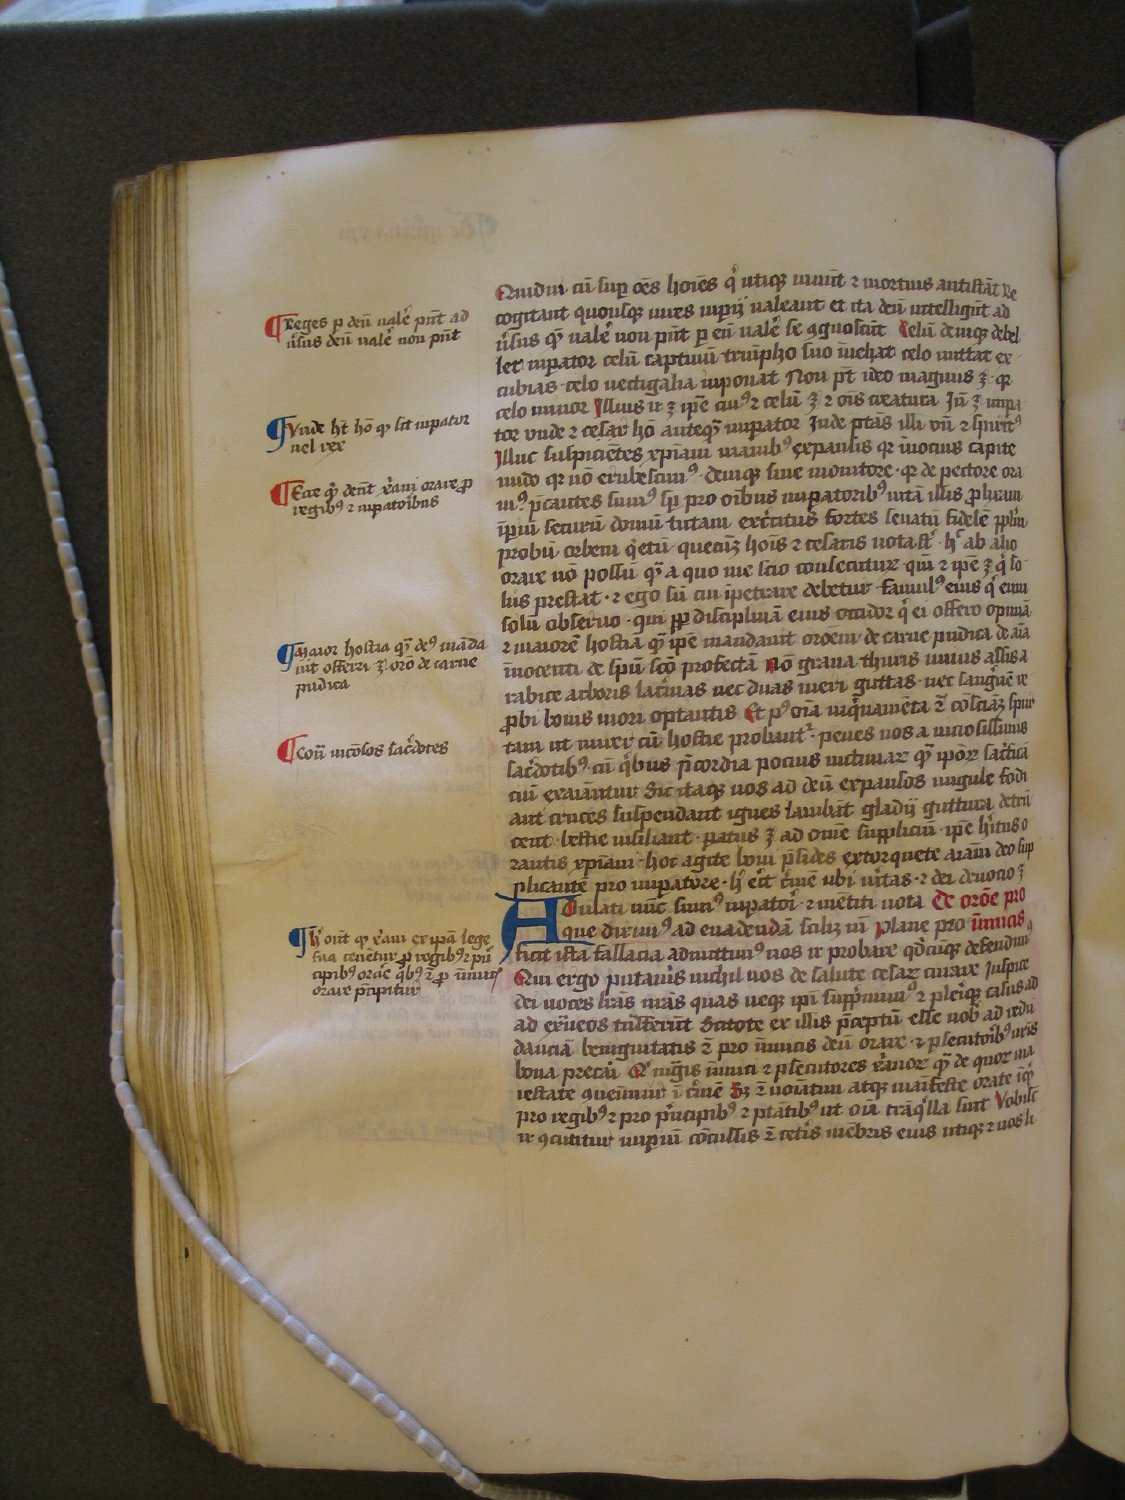 Reges p deū valē pn̄t ad
ūsus deū valē non pn̄t
Vnde ht̄ hō qͥ sit impator
uel rex
Ecce qͥ debēt xp̄iani orare pro
regibꝰ ⁊ impatoribus
Maior hostia qͣ deꝰ māda
uit offerri ꝫ orō de carne
pudica
Cont̄ viciosos sac̄dotes
orare p̄cipitur
Quidni cū suꝑ oēs hoīes qͥ utiqꝫ uiuūt ⁊ mortuis antistāt Re
cogitant quousqꝫ uires impij ualeant et ita deū intelligūt ad
ūsus qͣ ualē non pn̄t ꝑ eū ualē se ꝯgnoscūt Celū deniqꝫ debel
let impator celū captiuū triūpho suo inuehat celo mittat ex
cubias celo uectigalia imponat Non pt̄ ideo magnus ꝫ qr
celo minor Illius ir ꝫ ipē cuiꝰ ⁊ celū ꝫ ⁊ oīs creatura Iñ ꝫ impa
tor vnde ⁊ cesar hō anteqͣ impator Inde ptās illi vñ ⁊ spiritꝰ
Illuc suspiciētes xp̄iani manibꝰ expansis qr innocuis capite
nudo qr nō erubescimꝰ deniqꝫ sine monitore qr de pectore ora
mꝰ p̄cantes sumꝰ sꝑ pro oībus impatoribꝰ uitā illis prolixam
īpiū securū domū tutam exercitus fortes senatū fidelē pplm̄
probū orbem qͥetū quecūqꝫ hoīs ⁊ cesaris uota st̄ hͨ ab alio
orare nō possū qͣ a quo me scio consecutur qm̄ ⁊ ipē ꝫ qͥ so
lus prestat ⁊ ego sū cui īpetrare debetur famulꝰ eius qͥ eum
solū obseruo qui ppͭ disciplinā eius occidor qͥ ei offero opimā
⁊ maiorē hostiā qͣ ipē mandauit oroēm de carne pudica de aīa
īnocenti de sp̄ū scō profectā nō grana thuris unius assis a
rabice arboris lacrimas nec duas meri guttas nec sanguinē re
probi bouis mori optantis Et pꝰ oīa inqͥnamēta ē cōsciāꝫ spur
tam ut mirer cū hostie probantͬ penes uos a uiciosissimis
sac̄dotibꝰ cū qͥbus p̄cordia pocius uictimaꝝ qͣ ipoꝝ sac̄fica
ciū examiantur Sic itaqꝫ nos ad deū expansos ungule fodi
ant cruces suspendant ignes lambāt gladij guttura detrū
cent bestie insiliant patus ꝫ ad omē suppliciū ipē hītus o
rantis xp̄iani hoc agite boni p̄sides extorquete aīam deo sup
plicantē pro impatore hͨ erit crimē ubi ūitas ⁊ dei deuocio ꝫ
Adulati nūc sumꝰ impatori ⁊ mētiti uota De orōe pro
que dixīmꝰ ad euadendā scilꝫ uī Plane pro īimicis
ficit ista fallacia admittitis nos ir probare qd̄cūqꝫ defendimꝰ
Qui ergo putauis nichil nos de salute cesaꝝ curare Inspice
dei uoces lrās nrās quas neqꝫ ipi supprimimꝰ ⁊ pleriqꝫ casus ad
ad exᵗneos trāsferūt Scitote ex illis p̄ceptū esse nob̄ ad redū
danciā benignitatis ē pro īimicis deū orare ⁊ ꝑsecutoribꝰ nris
bona precari Qͥ magis īimici ⁊ ꝑsecutores xp̄ianoꝝ qͣ de quoꝝ ma
iestate ꝯuenimur ī crimē Sꝫ ē noīatim atqꝫ manifeste orate īqͥ
pro regibꝰ ⁊ pro prīcipibꝰ ⁊ ptātibꝰ ut oīa trāqͥlla sint Vobisc
ir ꝯcutitur impiū cōcussis ē cetis mēbris eius utiqꝫ ⁊ nos li